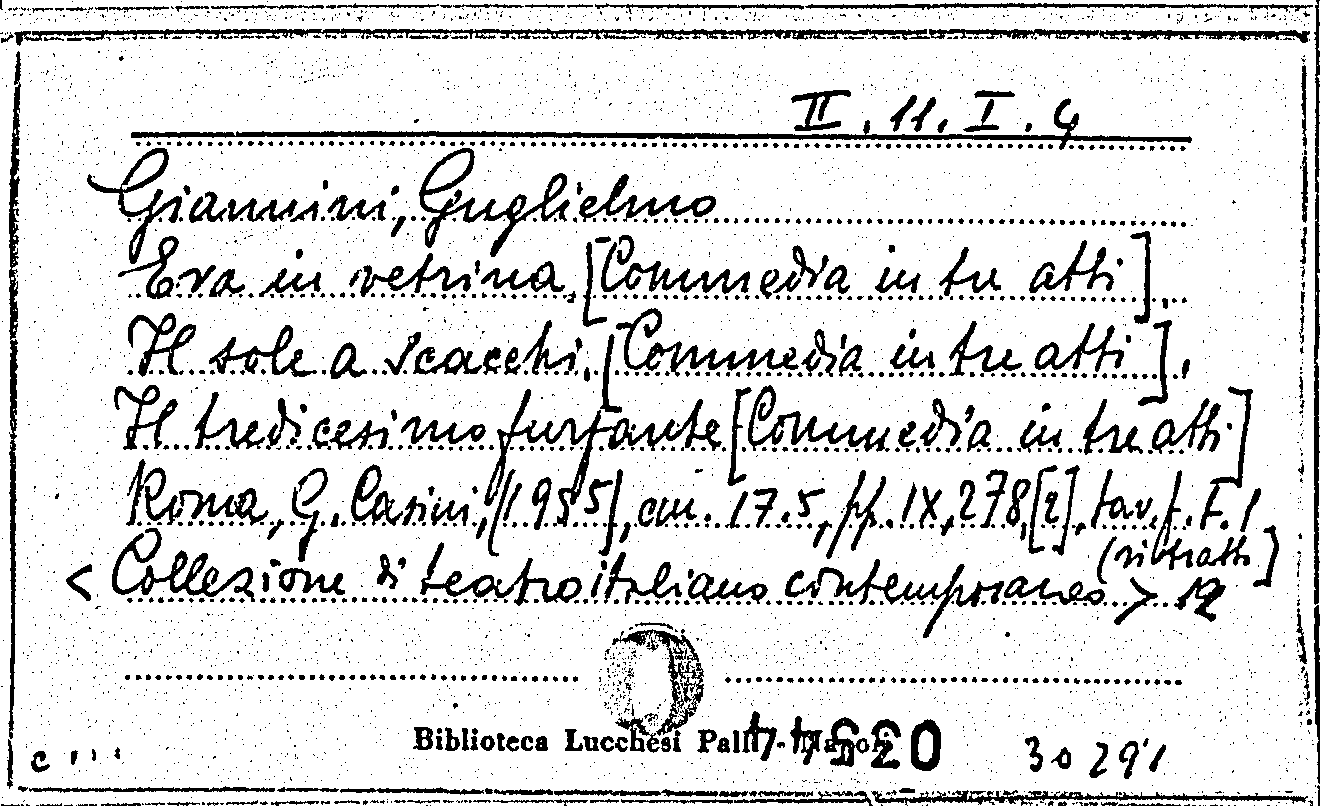 II.11.I.4
Giannini, Guglielmo
Eva in vetrina, [Commedia in tre atti].
Il sole a scacchi. [Commedia in tre atti],
Il tredicesimo furfante [Commedia in tre atti]
Roma, G. Casini, [1955], cm. 17.5, pp. IX, 278, [2], tav. f. T. 1
(ritratti]
< Collezione di teatro italiano contemporaneo > 12
Biblioteca Lucchesi Palli - Napoli
30291